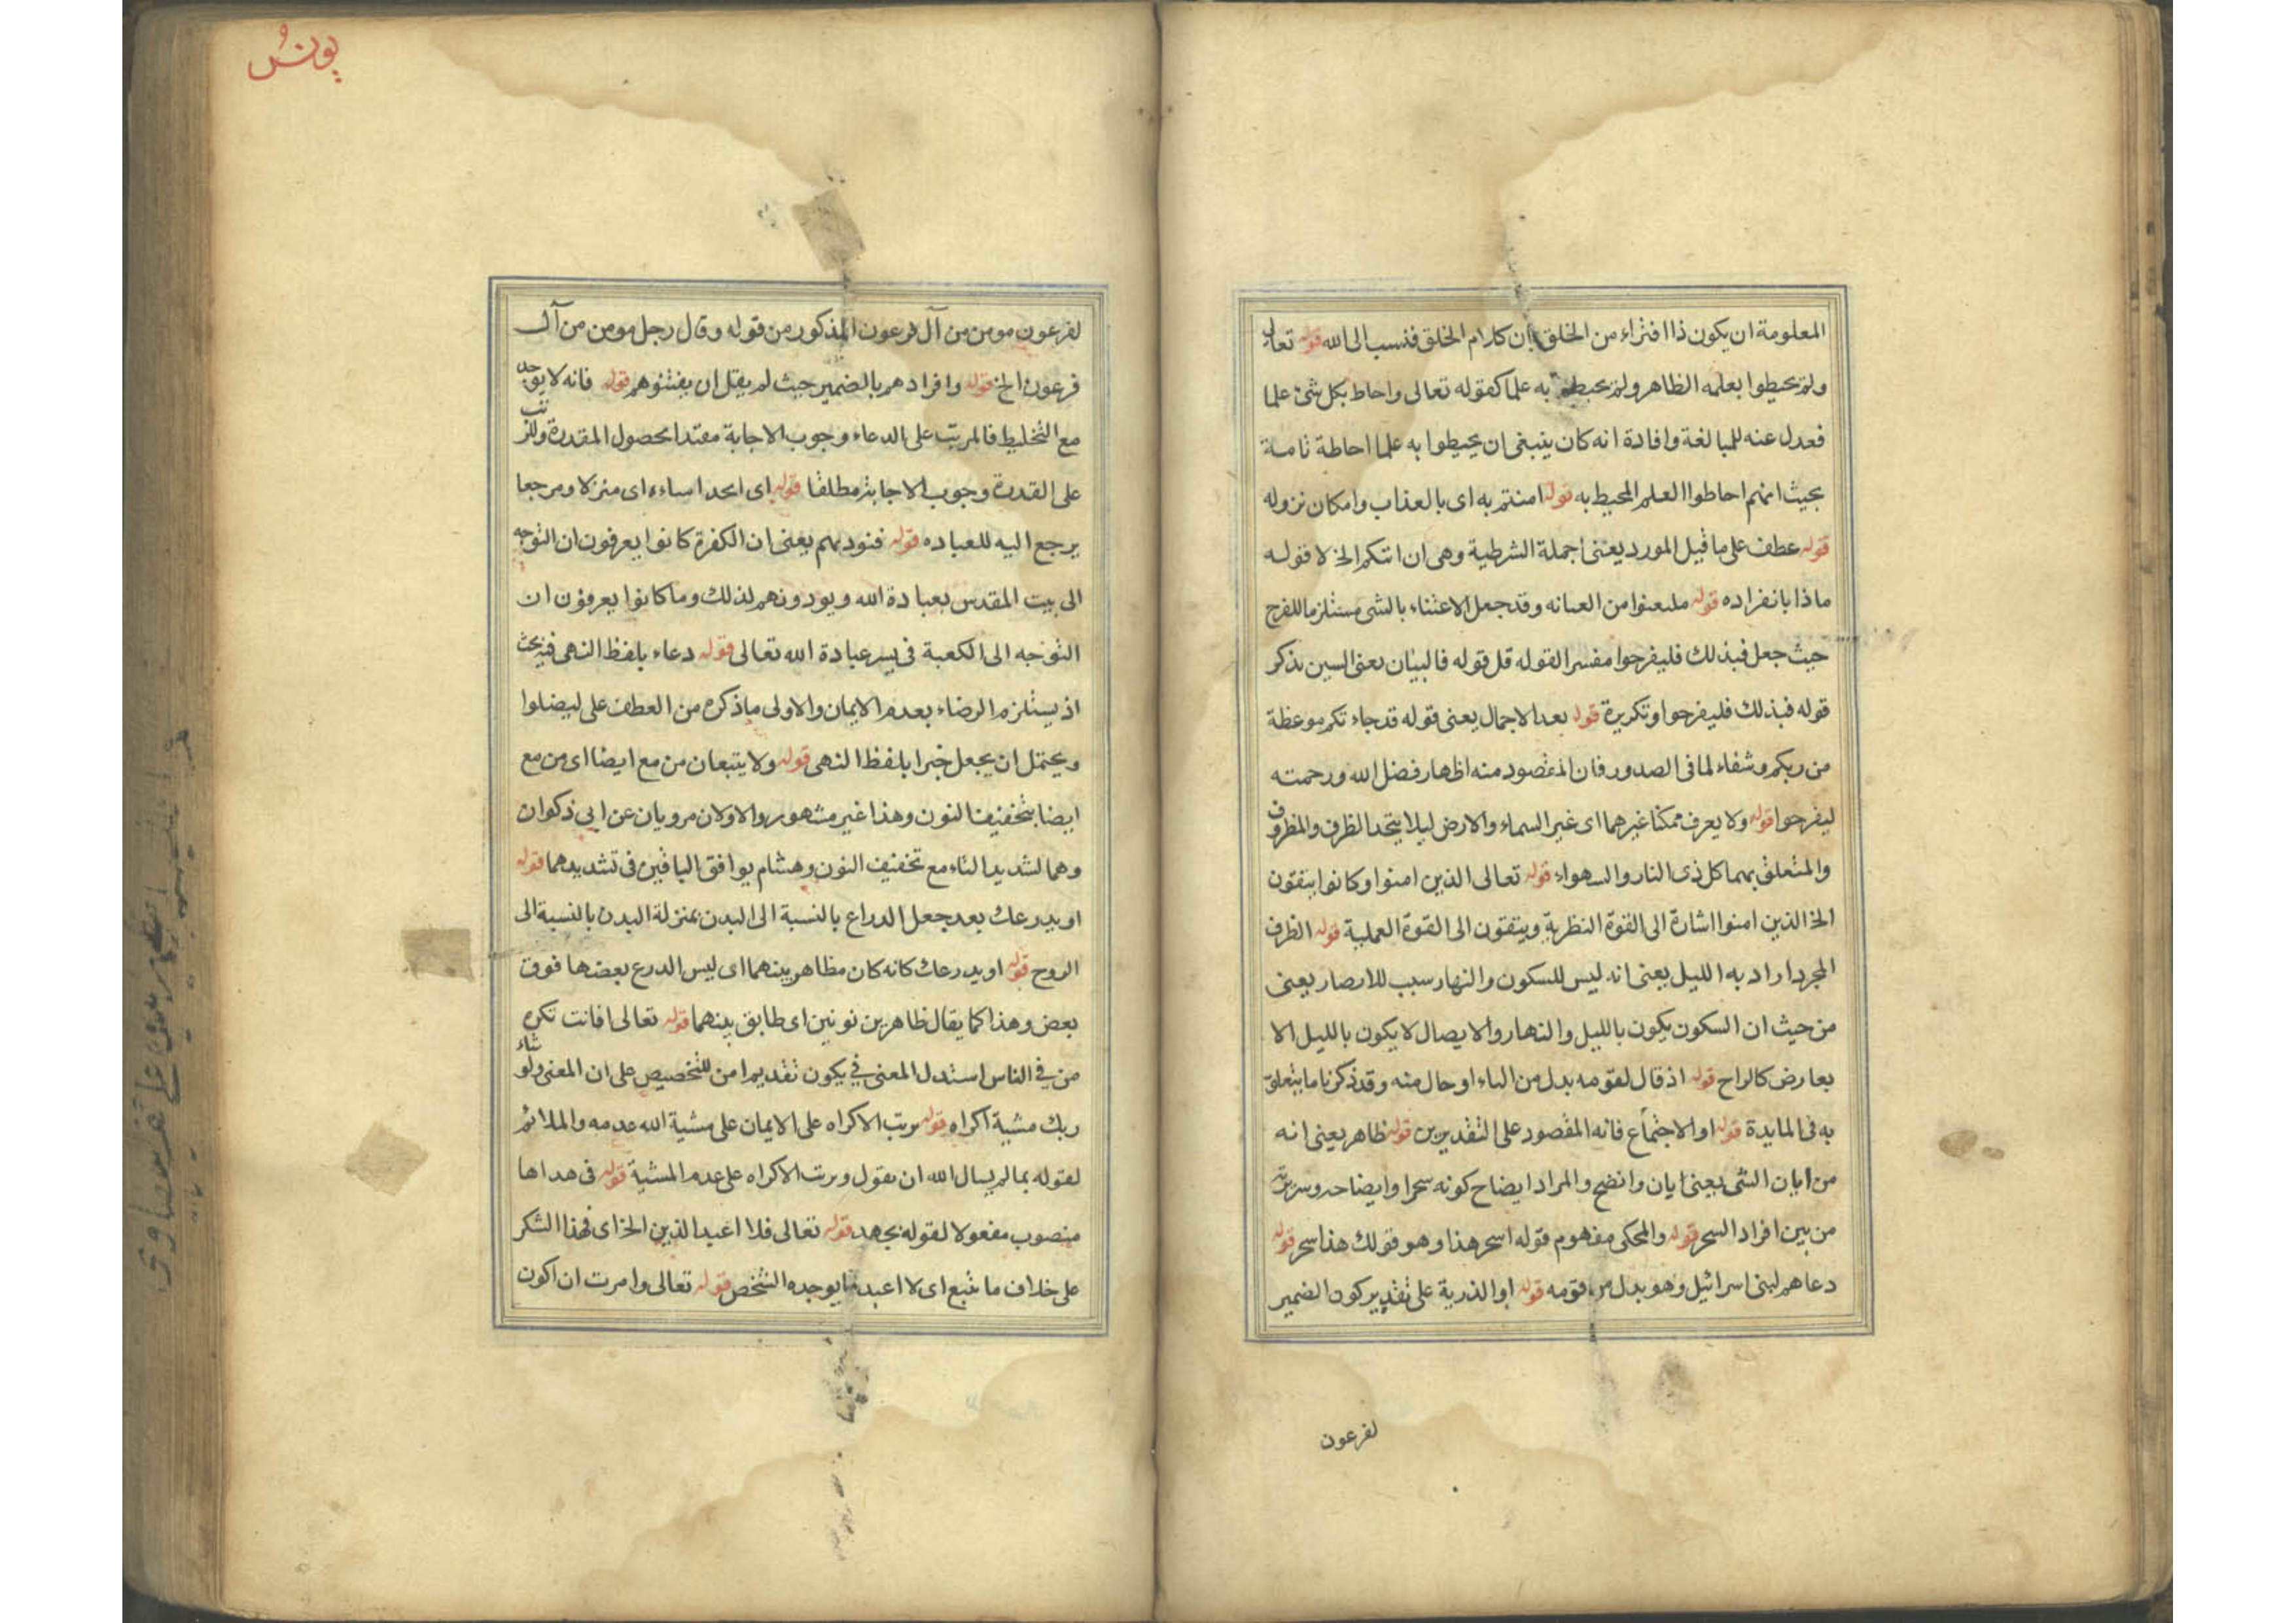 المعلومة ان يكون ذا افتراء من الخلق بان كلام الخلق فنسب الى الله قوله تعالى
ولم يحيطوا بعلمه الظاهر ولم يحيطوا به علما كقوله تعالى واحاط بكل شئ علما
فعدل عنه للمبالغة وافادة انه كان ينبغى ان يحيطوا به علما احاطة تامة
بحيث انهم احاطوا العلم المحيط به قوله امنتم به اى بالعذاب وامكان نزوله
قوله عطف على ما قيل المورد يعنى اجملة الشرطية وهى ان اتتكم الخ لا قوله
ماذا بانفراده قوله من العنايه وقد جعل الاعتناء بالشى مستلزما للفرح
حيث جعل فبذلك فليفرحوا مفسرا لقوله قل قوله فالبيان يعنى السين بذكر
قوله فبذلك فليفرحوا وتكريرة قوله بعد الاجمال يعنى قوله قد جاء تكم موعظة
من ربكم وشفاء لما فى الصدور فان المقصود منه اظهار فضل الله ورحمته
ليفرحوا قوله ولا يعرف ممكنا غيرهما اى غير السماء والارض ليلا يتحد الظرف والمظروف
والمتعلق بهما كل ذى النار والسهواء قوله تعالى الذين امنوا وكانوا يتقون
الخ الذين امنوا اشارة الى القوة النظرية ويتقون الى القوة العملية قوله الظرف
المجرد اراد به الليل يعنى انه ليس للسكون والنهار سبب للابصار يعنى
من حيث ان السكون يكون بالليل والنهار والايصال لا يكون بالليل الا
بعارض كالراح قوله اذ قال لقومه بدل من الباء او حال منه وقد ذكرنا ما يتعلق
به فى المايدة قوله او الاجتماع فانه المقصود على التقديرين قوله ظاهر يعنى انه
من ابان الشى يعنى ابان واتضح والمراد ايضاح كونه سحرا وايضاحه
من بين افراد السحر قوله والمحكى مفهوم قوله اسحر هذا وهو قولك هذا سحر قوله
دعاهم لبنى اسرائيل وهو بدل من قومه قوله او الذرية على تقدير كون الضمير
لفرعون
يونس
لفرعون مومن من آل فرعون المذكور من قوله وقال رجل مومن من آل
فرعون الخ قوله وافرادهم بالضمير حيث لم يقل ان يفتنوهم قوله فانه لا يوجد
مع التخليط فالمرتب على الدعاء وجوب الاجابة مقتدا بحصول المقدرة وللترتب
على القدرة وجوب الاجابة مطلقا قوله اى اتخذا مباءه اى منزلا ومرجعا
يرجع اليه للعباده قوله فنود بهم يعنى ان الكفرة كانوا يعرفون ان التوجه
الى بيت المقدس بعبادة الله ويودونهم لذلك وما كانوا يعرفون ان
التوجه الى الكعبة فى يسر عبادة الله تعالى قوله دعاء بلفظ النهى فيه بحث
اذ يستلزم الرضاء بعدم الايمان والاولى ما ذكره من العطف على ليضلوا
ويحتمل ان يجعل خبرا بلفظ النهى قوله ولا يتبعان من مع ايضا اى من مع
ايضا بتخفيف النون وهذا غير مشهور والاولان مرويان عن ابى ذكوان
وهما لشديد التاء مع تخفيف النون وهشام يوافق الباقين فى تشديدهما قوله
او بدرعك بعد جعل الدراع بالنسبة الى البدن بمنزلة البدن بالنسبة الى
الروح قوله او بدرعك كانه كان مظاهر بينهما اى ليس الدرع بعضها فوق
بعض وهذا كما يقال ظاهر بين ثوبين اى طابق بينهما قوله تعالى افانت تكره
من فى الناس استدل المعنى فى يكون تقديرا من للتخصيص على ان المعنى ولو شاء
ربك مشية اكراه قوله مرتب الاكراه على الايمان على مشية الله عدمه والملائم
لقوله بما لم يسال الله ان يقول ويرتب الاكراه على عدم المشية قوله فى هداها
منصوب مفعولا لقوله يجهد قوله تعالى فلا اعبد الذين الخ اى فهذا الشكر
على خلاف ما نتبع اى لا اعبد ما يوجده الشخص قوله تعالى وامرت ان اكون